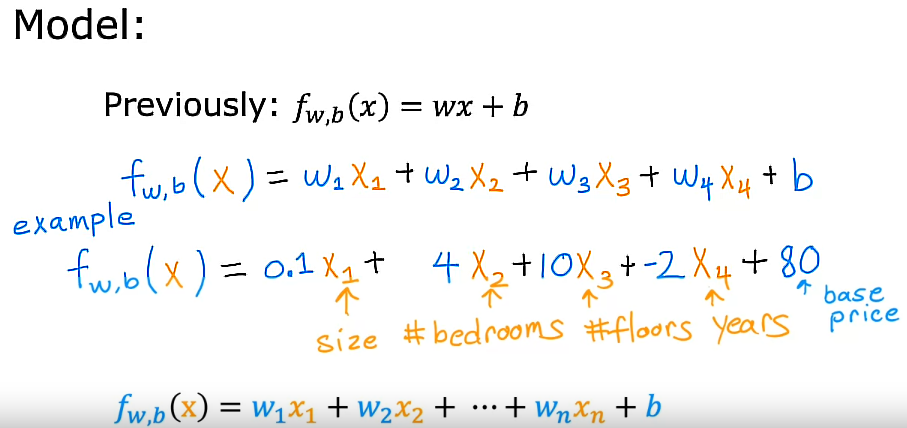 Model:
Previously: f_{w,b}(x) = wx + b
f_{w,b}(x) = w₁x₁ + w₂x₂ + w₃x₃ + w₄x₄ + b
example
f_{w,b}(x) = 0.1x₁ + 4x₂ + 10x₃ + -2x₄ + 80
↑ ↑ ↑ ↑ ↑ base
size #bedrooms #floors years price
f_{w,b}(x) = w₁x₁ + w₂x₂ + ⋯ + wₙxₙ + b